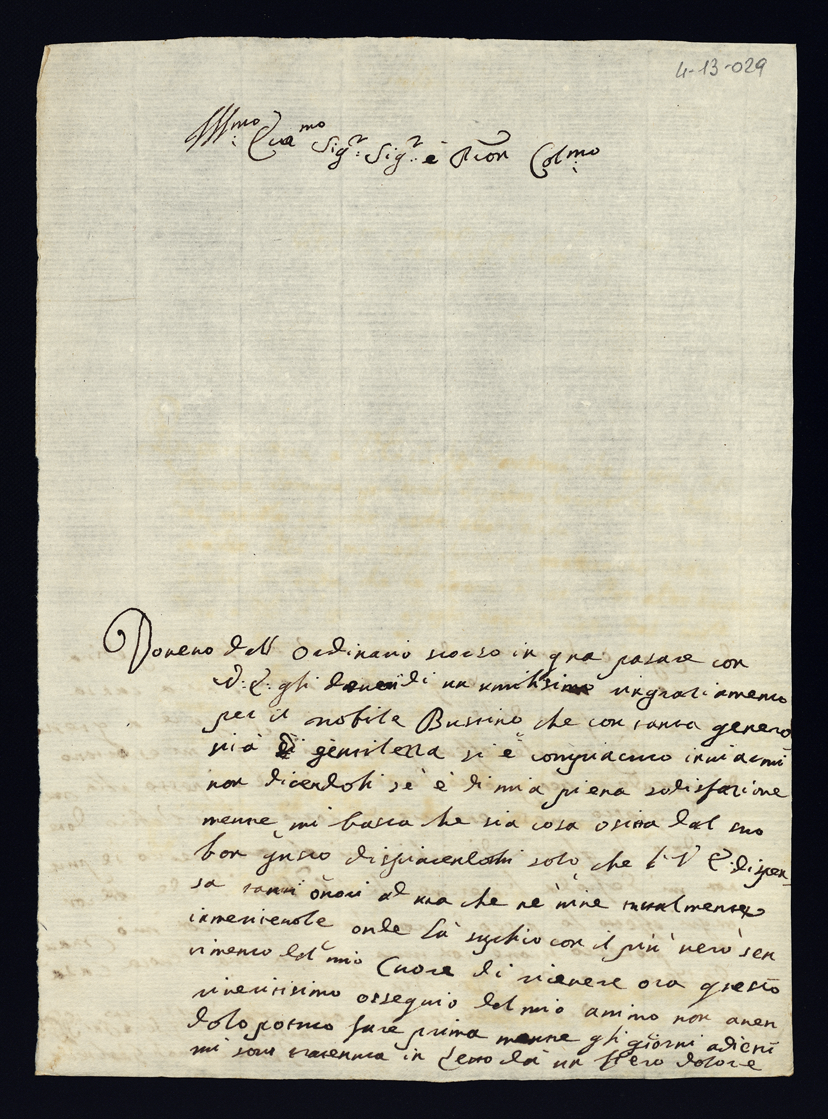 4-13-029
Illmo: Sigr: Sigr: è Pron Colmo:
Doveno dall Ordinario scorso in qua pasare con
V: E: gli doveri di un umilissimo ringratiamento
per il nobile Bussino che con tanta genero
sità di gentilezza si è compiaciuto inviarmi
non dicendoli se è di mia piena sodisfazione
mentre mi basta che sia cosa osita dal suo
bon gusto dispiacendomi solo che l'V E: dispen-
sa tanti onori ad una che ne vive
immeritevole onde la suplico con il più vero sen
timento del mio Cuore di ricevere ora questo
riveritisimo ossequio del mio animo non aven
dolo potuto fare prima mentre gli giorni adietri
mi sono trattenuta in letto da un fiero dolore